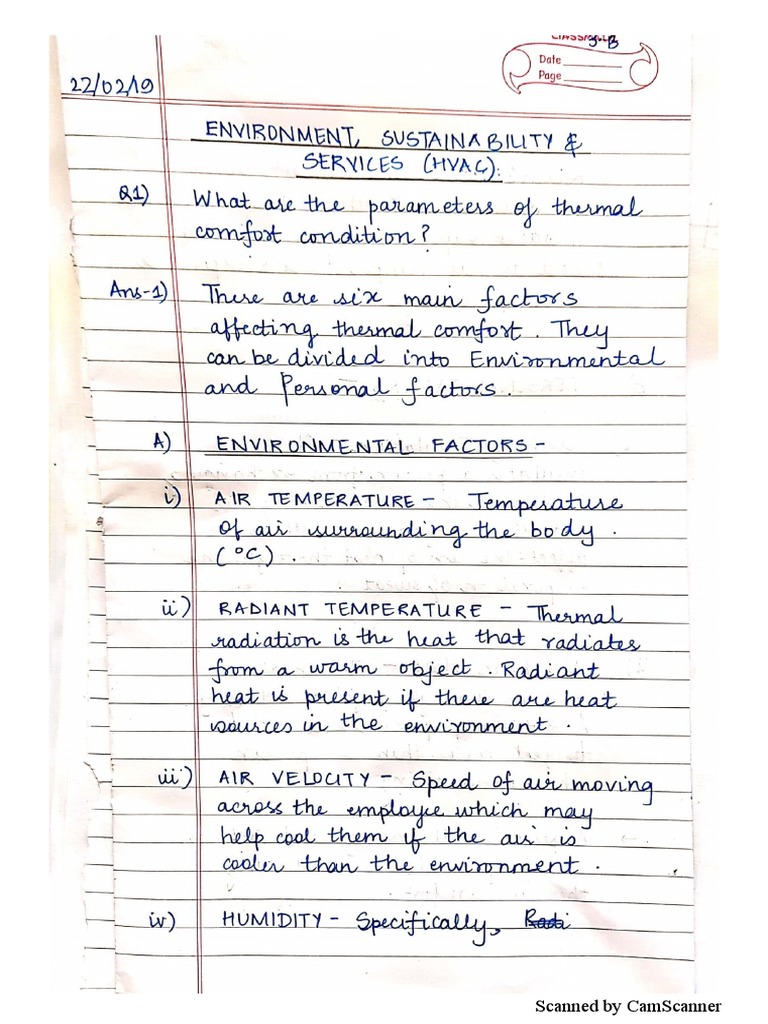 CLASSMATE
3-B
Date
Page
22/02/19
ENVIRONMENT, SUSTAINABILITY &
SERVICES (HVAC):
Q1) What are the parameters of thermal
comfort condition?
Ans-1) There are six main factors
affecting thermal comfort. They
can be divided into Environmental
and Personal factors.
A) ENVIRONMENTAL FACTORS -
i) AIR TEMPERATURE - Temperature
of air surrounding the body.
(°C).
ii) RADIANT TEMPERATURE - Thermal
radiation is the heat that radiates
from a warm object. Radiant
heat is present if there are heat
sources in the environment.
iii) AIR VELOCITY - Speed of air moving
across the employee which may
help cool them if the air is
cooler than the environment.
iv) HUMIDITY - Specifically,
Scanned by CamScanner